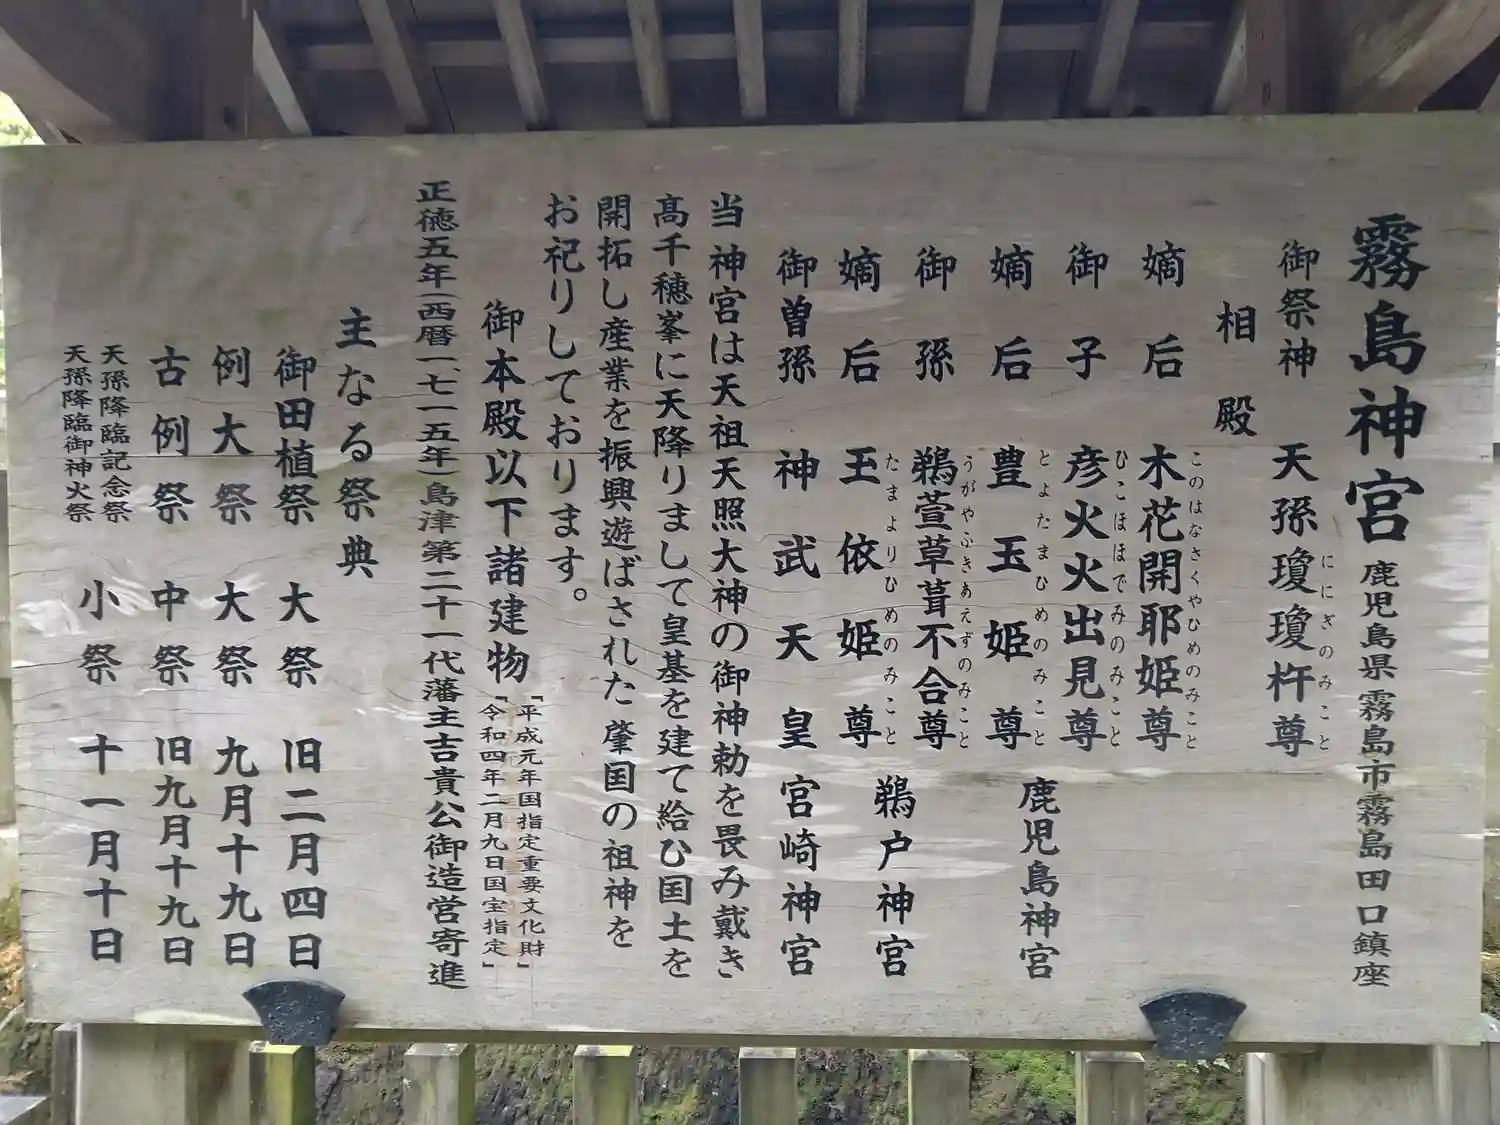 霧島神宮 鹿児島県霧島市霧島田口鎮座
御祭神 天孫瓊瓊杵尊
ににぎのみこと
相殿
嫡后 木花開耶姫尊
このはなさくやひめのみこと
御子 彦火火出見尊
ひこほほでみのみこと
嫡后 豊玉姫尊 鹿児島神宮
とよたまひめのみこと
御孫 鵜萱草葺不合尊
うがやふきあえずのみこと
嫡后 玉依姫尊 鵜戸神宮
たまよりひめのみこと
御曽孫 神武天皇 宮崎神宮
当神宮は天祖天照大神の御神勅を畏み戴き
高千穂峯に天降りまして皇基を建て給ひ国土を
開拓し産業を振興遊ばされた肇国の祖神を
お祀りしております。
御本殿以下諸建物
「平成元年国指定重要文化財」
「令和四年二月九日国宝指定」
正徳五年(西暦一、七一五年)島津第二十一代藩主吉貴公御造営寄進
主なる祭典
御田植祭 大祭 旧二月四日
例大祭 大祭 九月十九日
古例祭 中祭 旧九月十九日
天孫降臨記念祭
天孫降臨御神火祭
小祭 十一月十日